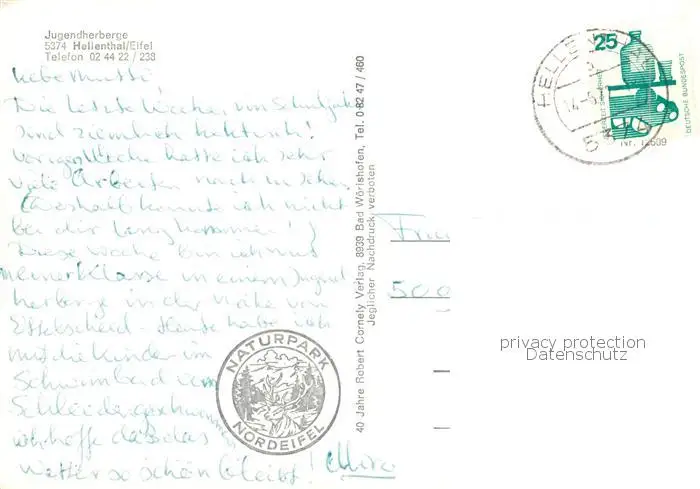 Jugendherberge
5374 Hellenthal/Eifel
Telefon 02 44 22 / 238
Liebe Mutti,
Die letzte Wochen vom Schuljahr
sind ziemlich hektisch!
Vorige Woche hatte ich sehr
viele Arbeiten nach
(deshalb konnte ich nicht
bei dir lang kommen!)
Diese Woche bin ich mit
meiner Klasse in einem Jugend
herberge in der Nähe von
Heute habe ich
mit die Kinder im
Schwimmbad von
Schleiden geschwommen
ich hoffe dass das
Wetter so schön bleibt!
40 Jahre Robert Cornely Verlag, 8939 Bad Wörishofen, Tel. 0 82 47 / 460
Jeglicher Nachdruck verboten
NATURPARK
NORDEIFEL
HELLENTHAL
25
DEUTSCHE BUNDESPOST
Nr. 12509
Frau
500
privacy protection
Datenschutz